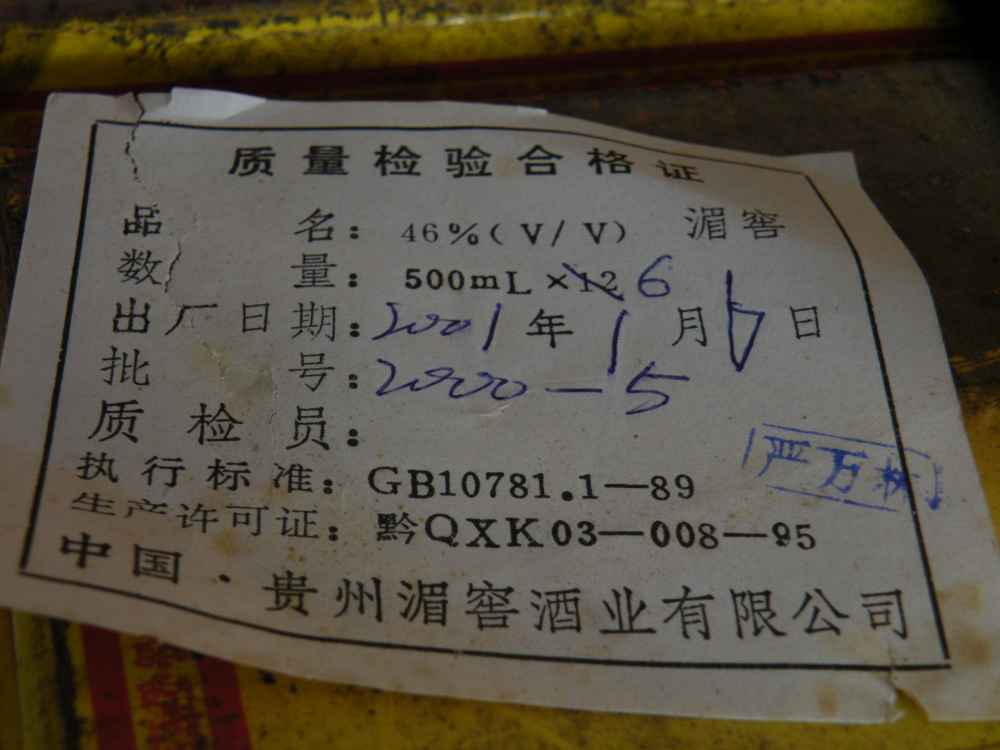 质量检验合格证
品名：46%(V/V) 湄窖
数量：500mL×12 6
出厂日期：2001年1月6日
批号：2000—5
质检员：
严万林
执行标准：GB10781.1—89
生产许可证：黔QXK03—008—95
中国·贵州湄窖酒业有限公司